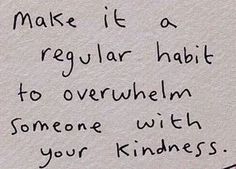 Make it a
regular habit
to overwhelm
someone with
your kindness.